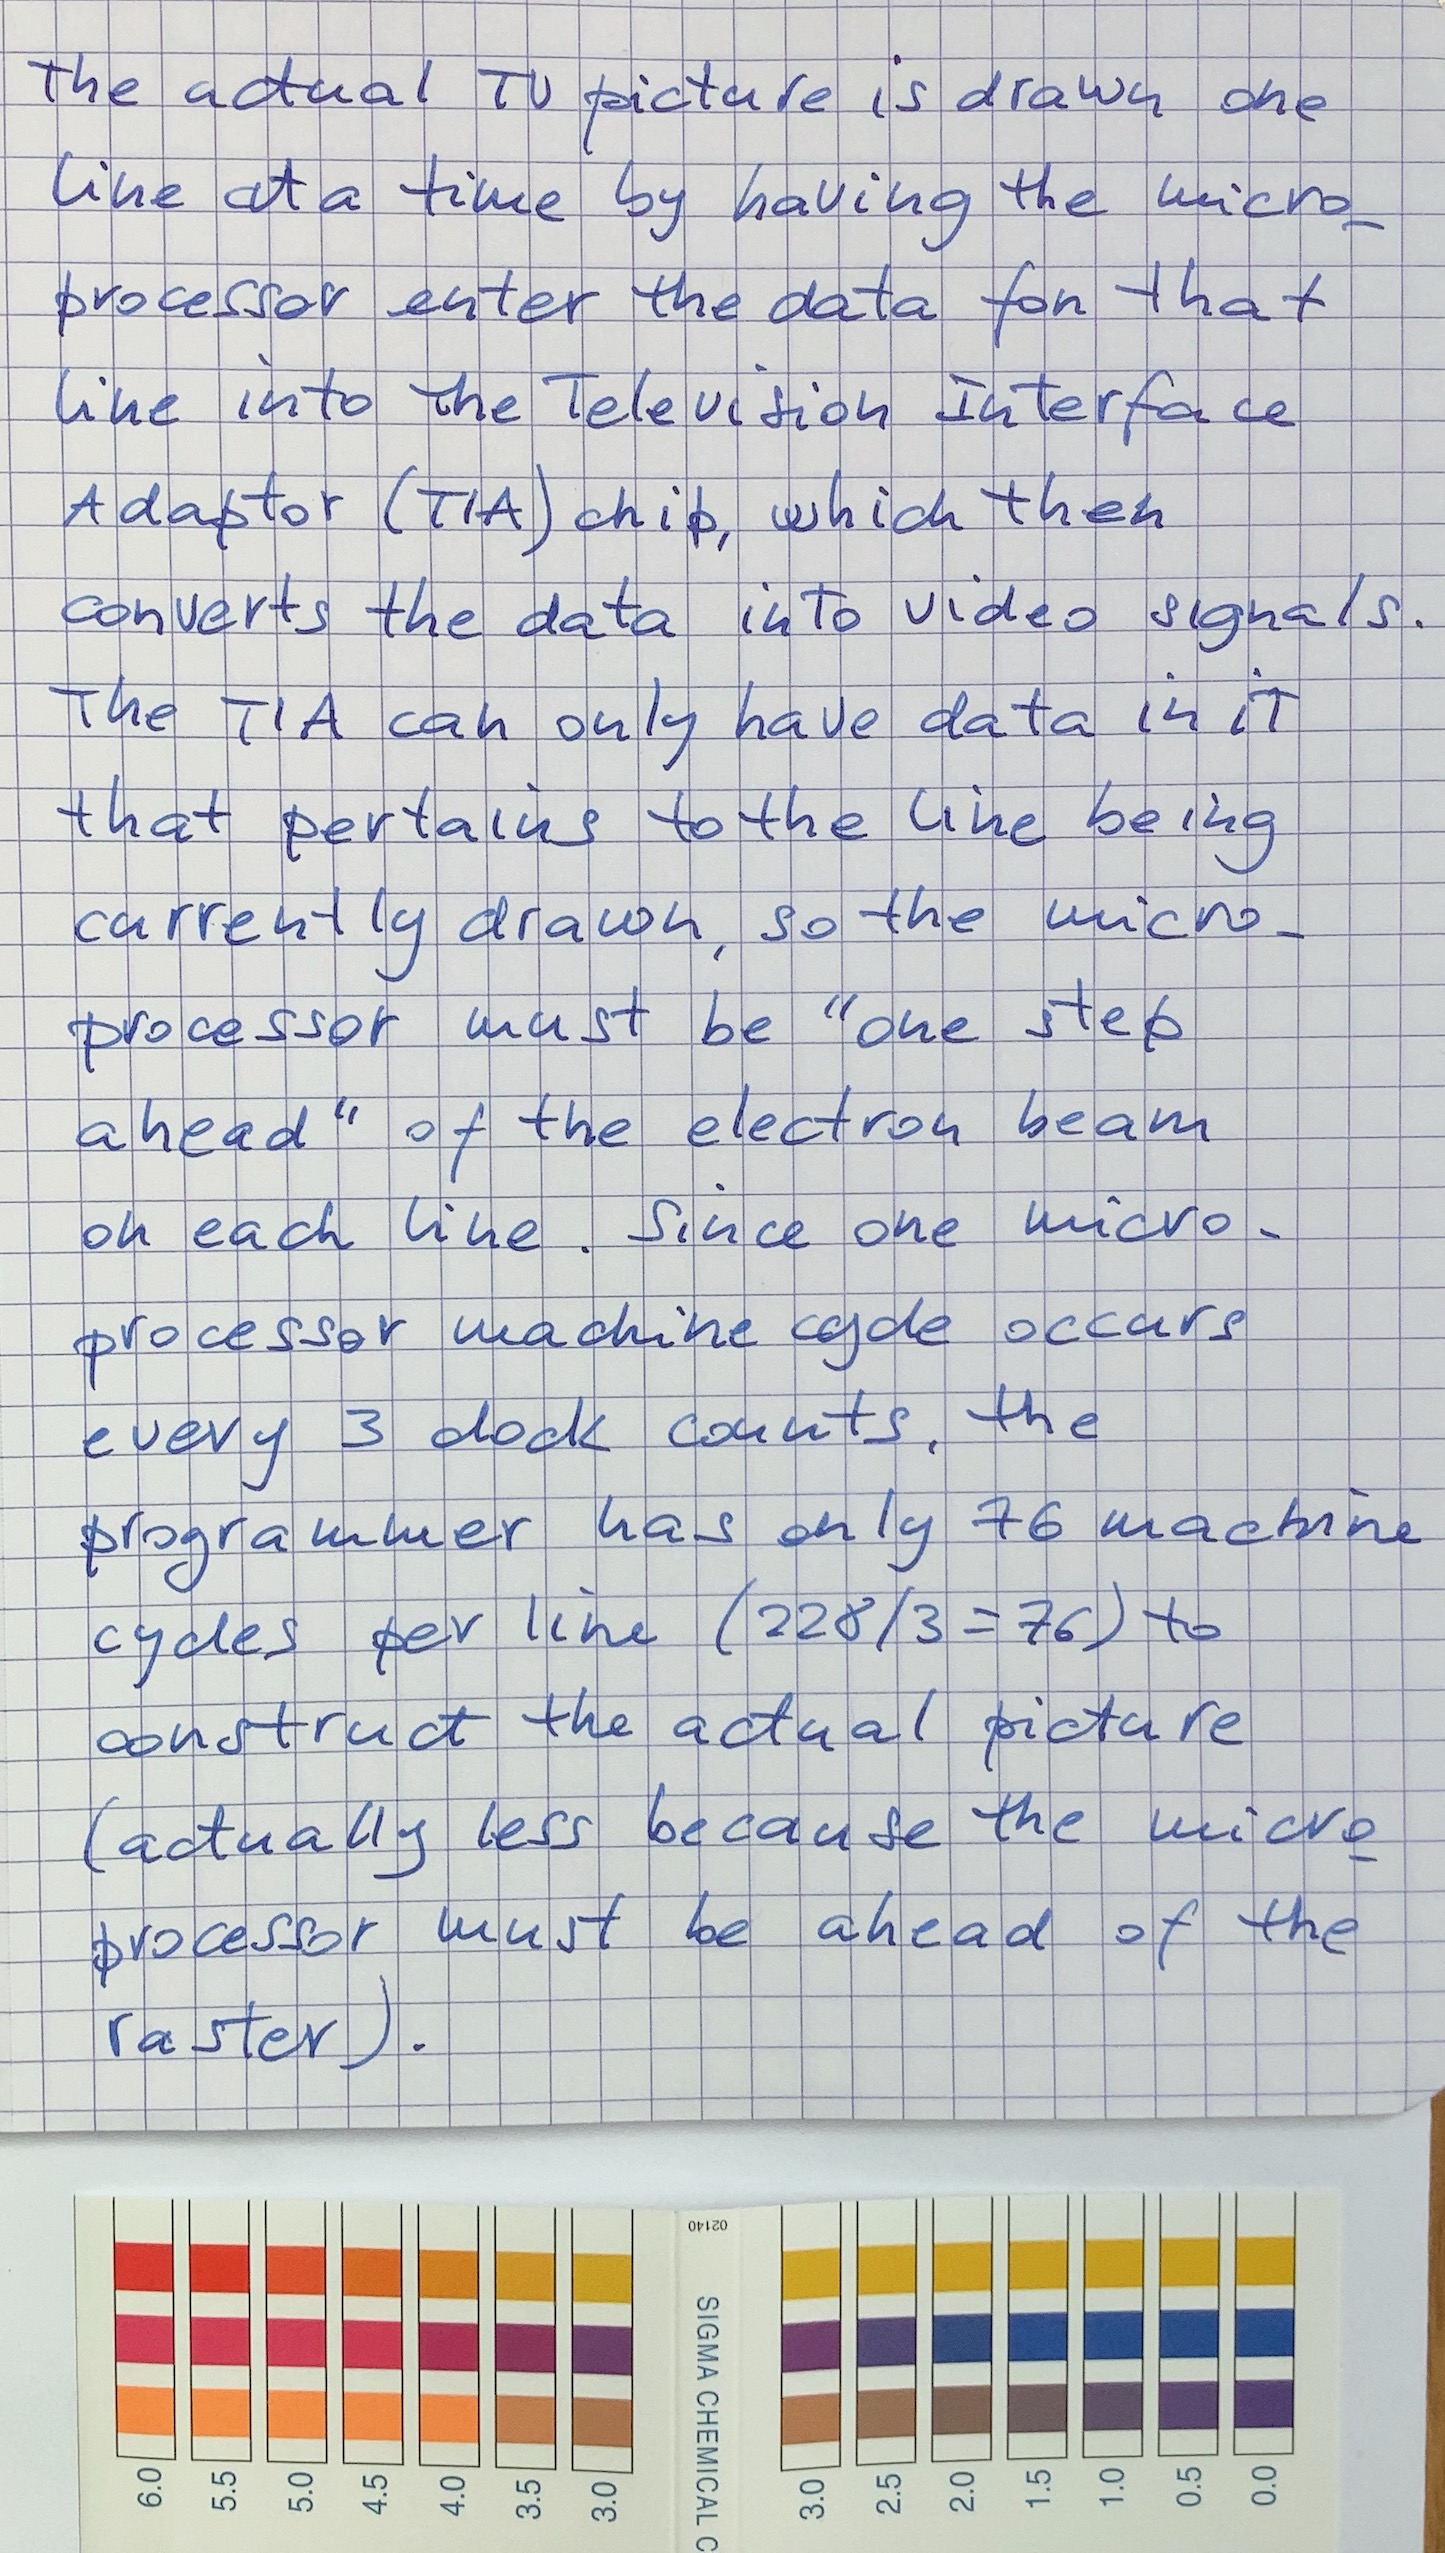 The actual TV picture is drawn one
line at a time by having the micro-
processor enter the data for that
line into the Television Interface
Adaptor (TIA) chip, which then
converts the data into video signals.
The TIA can only have data in it
that pertains to the line being
currently drawn, so the micro-
processor must be "one step
ahead" of the electron beam
on each line. Since one micro-
processor machine cycle occurs
every 3 clock counts, the
programmer has only 76 machine
cycles per line (228/3=76) to
construct the actual picture
(actually less because the micro-
processor must be ahead of the
raster).
02140
SIGMA CHEMICAL C
6.0 5.5 5.0 4.5 4.0 3.5 3.0 3.0 2.5 2.0 1.5 1.0 0.5 0.0